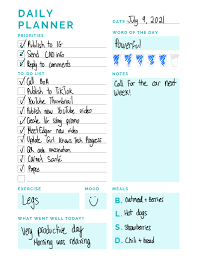 DAILY
PLANNER
DATE July 9, 2021
PRIORITIES
Publish to IG
Send
Reply to comments
WORD OF THE DAY
Powerful
TO-DO LIST
Call Bank
Publish to TikTok
YouTube Thumbnail
Publish new YouTube video
Create IG story promo
new video
Update
QR code
Pages
NOTES
Call for the car next
week!
EXERCISE
Legs
MOOD
MEALS
B. Oatmeal + Berries
L. Hot dogs
S. Strawberries
D. Chili + Bread
WHAT WENT WELL TODAY?
Very productive day
Morning was relaxing